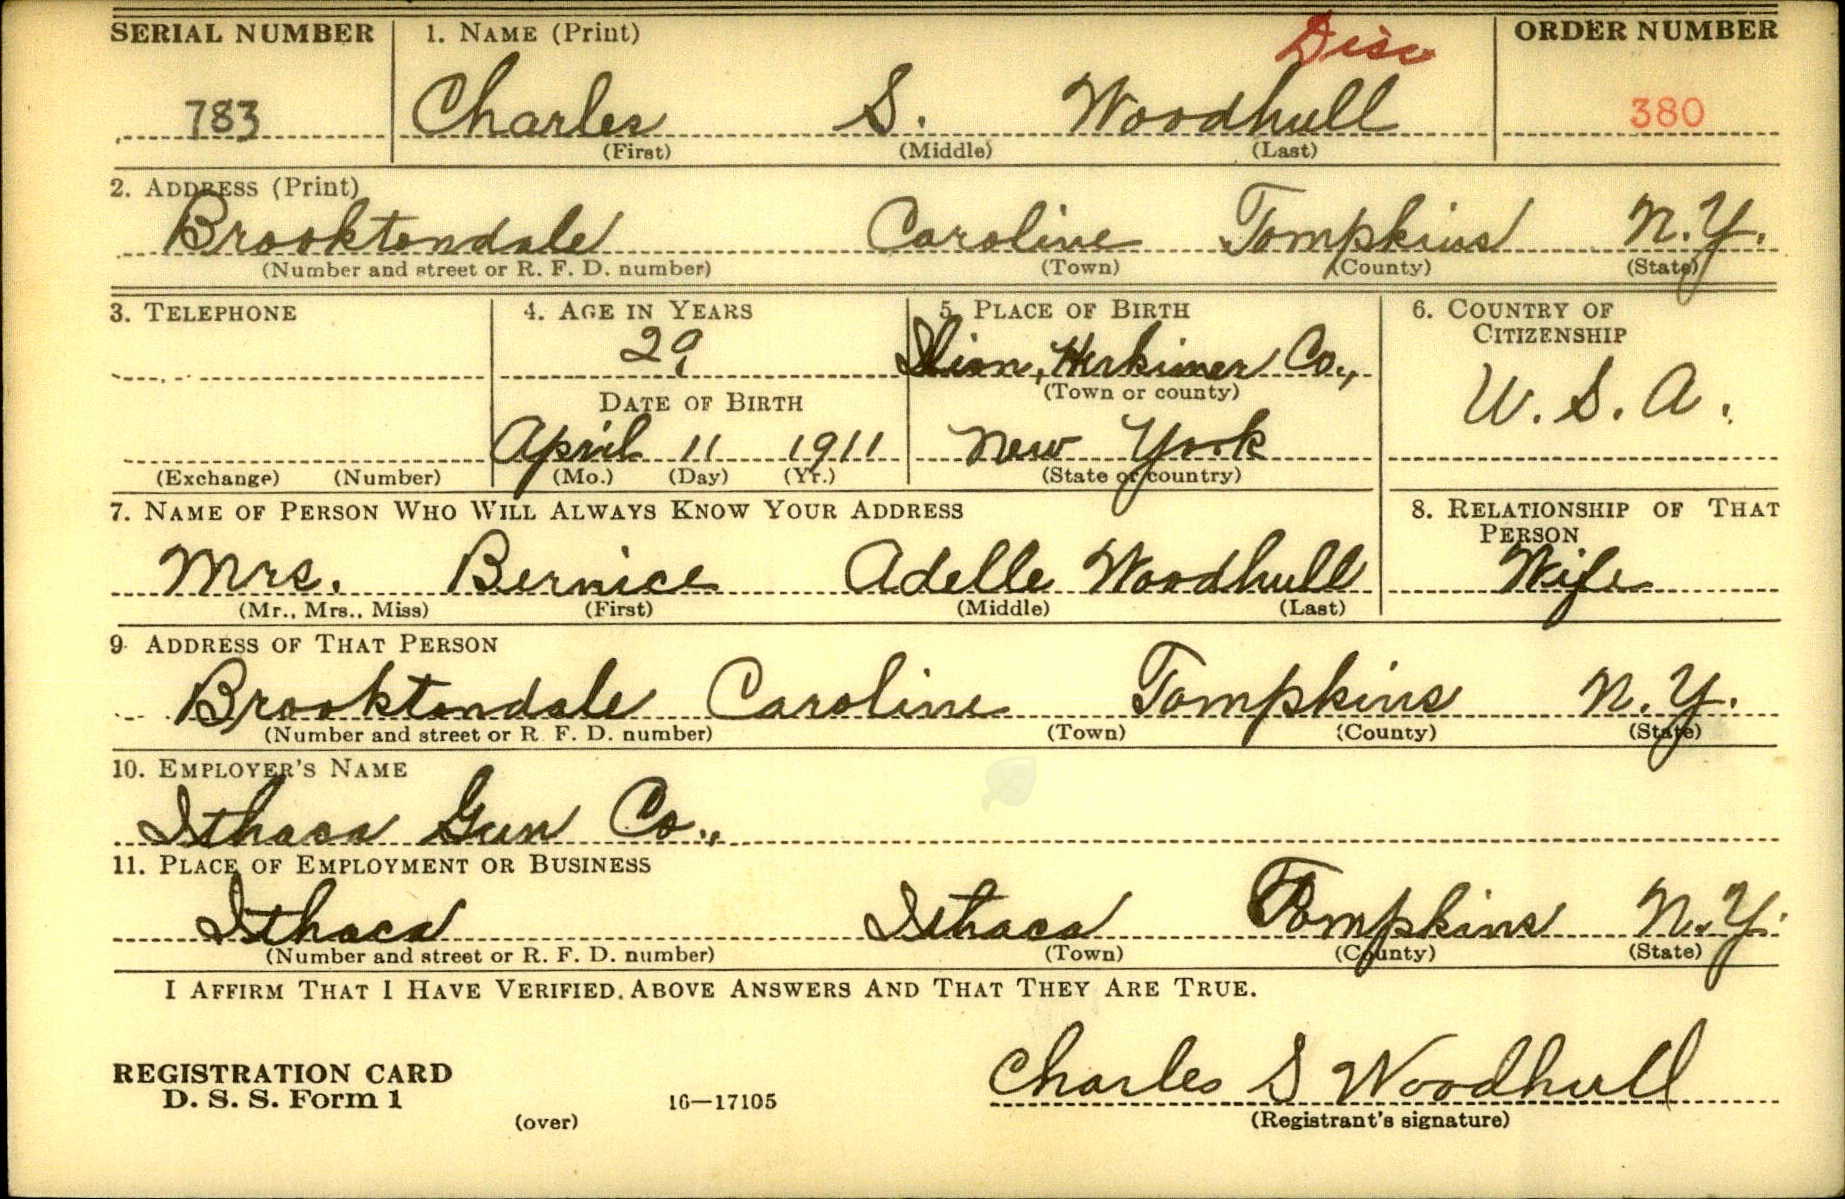 SERIAL NUMBER 1. NAME (Print) Disc ORDER NUMBER
783 Charles S. Woodhull 380
(First) (Middle) (Last)
2. ADDRESS (Print)
Brooktondale Caroline Tompkins N.Y.
(Number and street or R. F. D. number) (Town) (County) (State)
3. TELEPHONE 4. AGE IN YEARS 5. PLACE OF BIRTH 6. COUNTRY OF
CITIZENSHIP
29 Ilion, Herkimer Co.,
(Town or county)
DATE OF BIRTH U. S. A.
April 11 1911 New York
(Exchange) (Number) (Mo.) (Day) (Yr.) (State or country)
7. NAME OF PERSON WHO WILL ALWAYS KNOW YOUR ADDRESS 8. RELATIONSHIP OF THAT
PERSON
Mrs. Bernice Adelle Woodhull Wife
(Mr., Mrs., Miss) (First) (Middle) (Last)
9. ADDRESS OF THAT PERSON
Brooktondale Caroline Tompkins N.Y.
(Number and street or R. F. D. number) (Town) (County) (State)
10. EMPLOYER'S NAME
Ithaca Gun Co.,
11. PLACE OF EMPLOYMENT OR BUSINESS
Ithaca Ithaca Tompkins N.Y.
(Number and street or R. F. D. number) (Town) (County) (State)
I AFFIRM THAT I HAVE VERIFIED ABOVE ANSWERS AND THAT THEY ARE TRUE.
REGISTRATION CARD Charles S Woodhull
D. S. S. Form 1 16—17105
(over) (Registrant's signature)